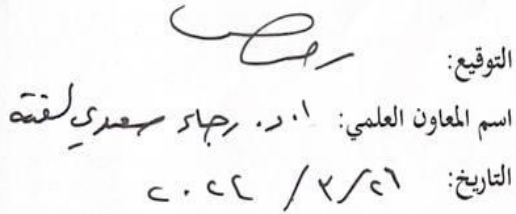 التوقيع:
اسم المعاون العلمي: ا.د. رجاء سعدي لفتة
التاريخ: ٢٦ / ٣ / ٢٠٢٤